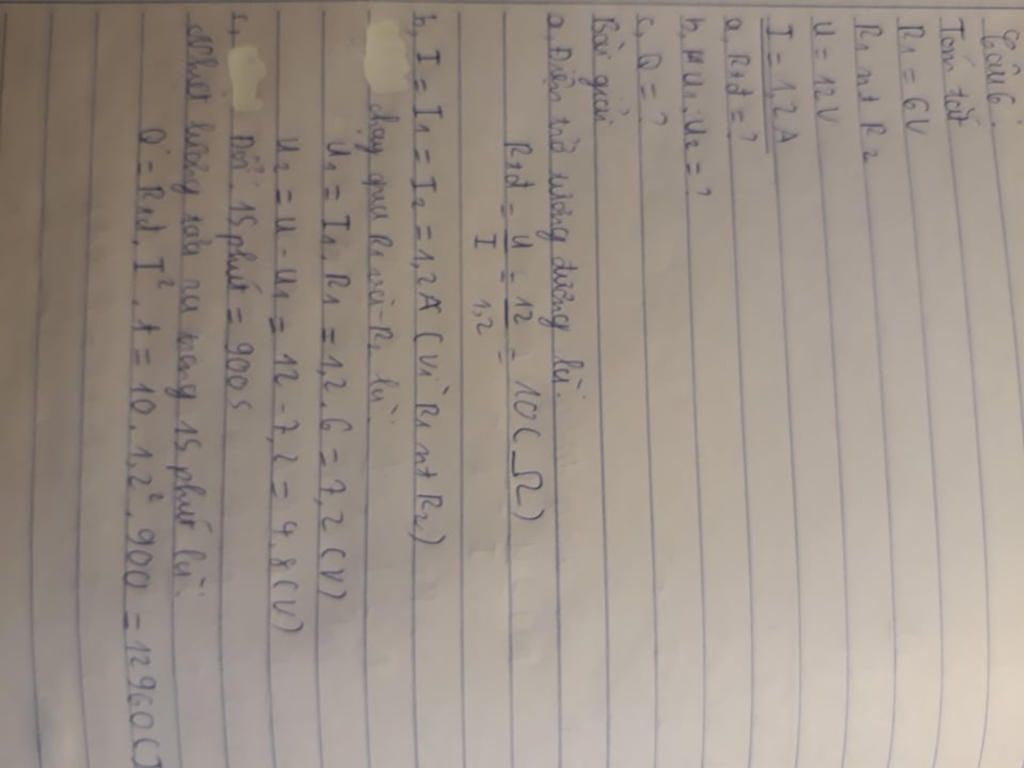 Câu 6:
Tóm tắt
R1 = 6V
R1 nt R2
U = 12V
I = 1,2A
a, Rtđ = ?
b, U1, U2 = ?
c, Q = ?
Bài giải
a, Điện trở tương đương là:
Rtđ = U/I = 12/1,2 = 10(Ω)
b, I = I1 = I2 = 1,2A (Vì R1 nt R2)
chạy qua R1 là:
U1 = I1.R1 = 1,2.6 = 7,2 (V)
U2 = U - U1 = 12 - 7,2 = 4,8 (V)
c, Đổi: 15 phút = 900s
Nhiệt lượng tỏa ra trong 15 phút là:
Q = Rtđ.I².t = 10.1,2².900 = 12960(J